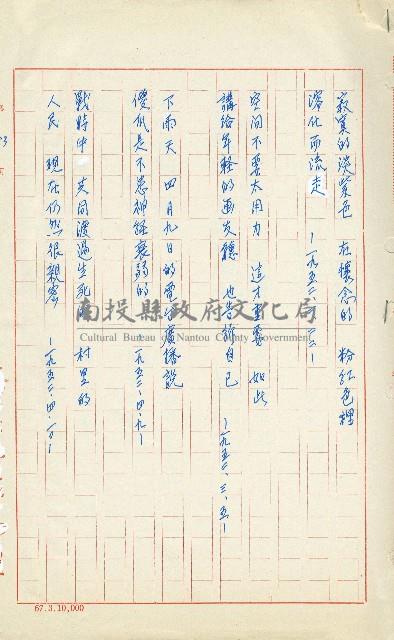 寂寞的淡紫色　在懷念的　粉紅色裡
溶化而流走　—一九五二、一、二二—
空間不要太用力　這才重要　如此
講給年輕的画友聽　也告訴自己　—一九五二、三、五—
下雨天　四月九日的電台廣播說
優低是不患神経衰弱的　一九五二、四、九—
戰時中　共同渡過生死　村里的
人民　現在仍然很親密　—一九五二、四、一〇—
南投縣政府文化局
Cultural Bureau of Nantou County Government
67.3.10,000